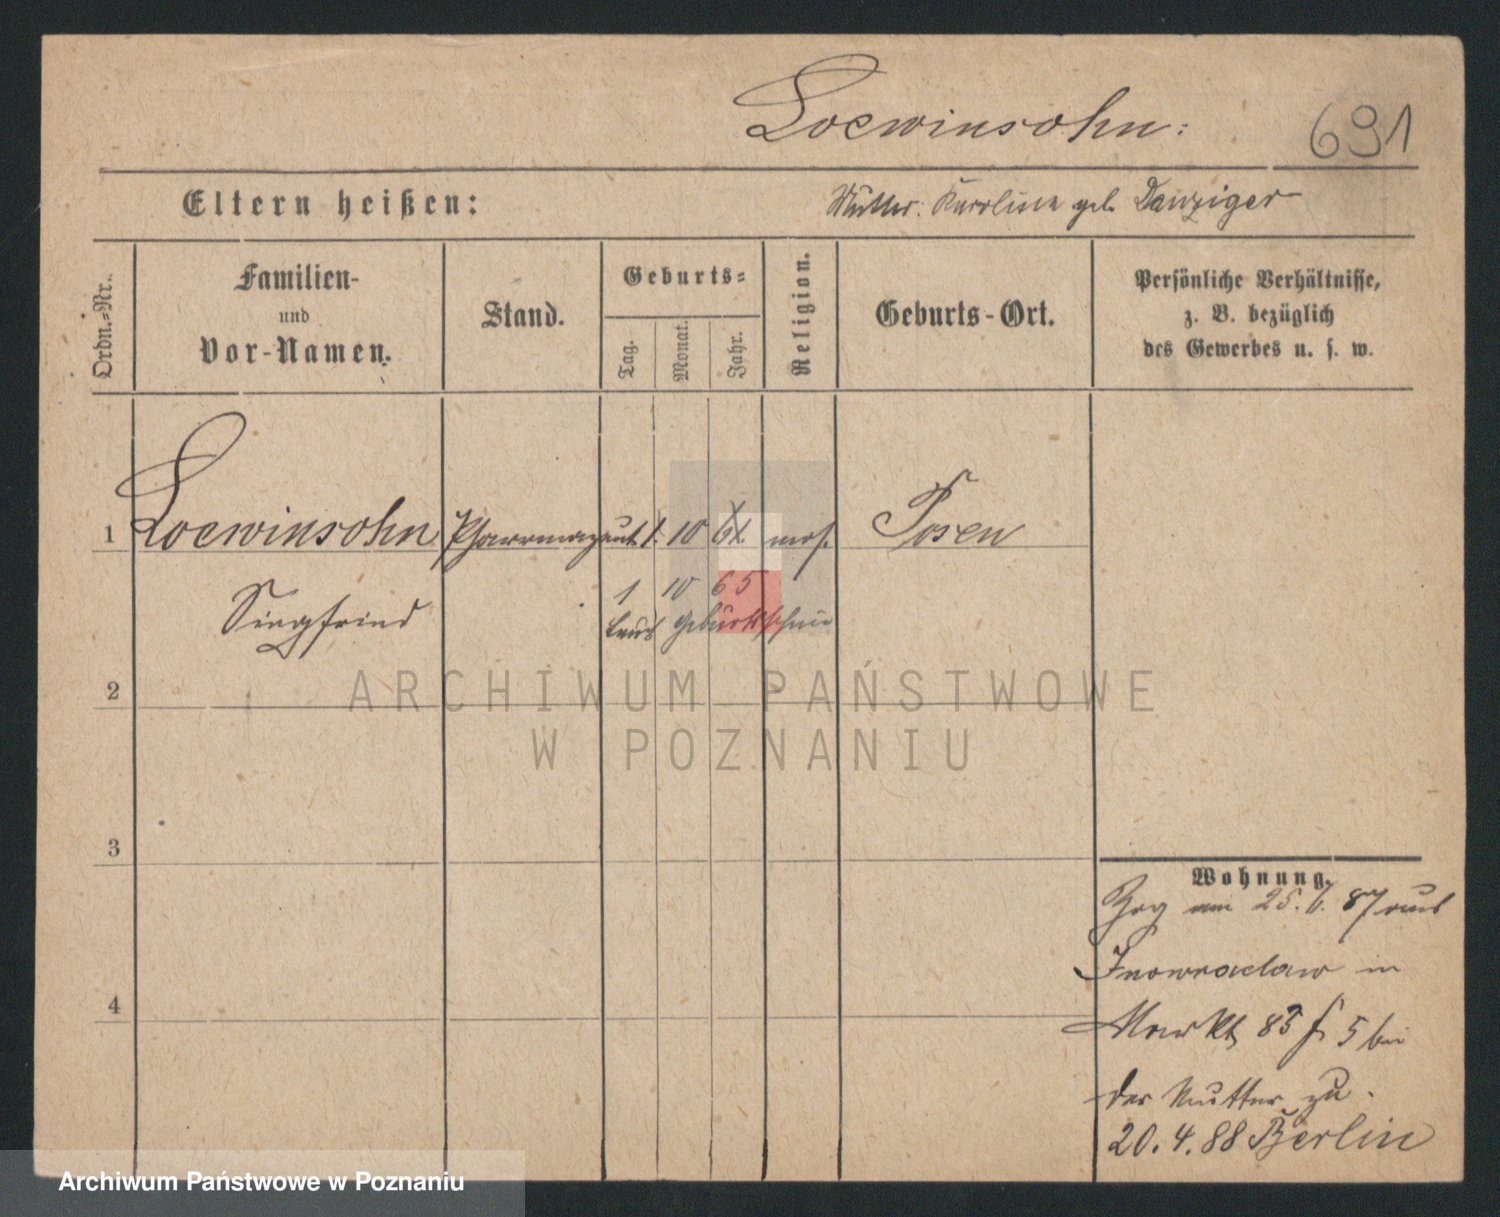 Loewinsohn:
691
Eltern heißen:
Mutter: Karoline geb. Danziger
Ordn.-Nr.
Familien-
und
Vor-Namen.
Stand.
Geburts-
Tag.
Monat.
Jahr.
Religion.
Geburts-Ort.
Persönliche Verhältnisse,
z. B. bezüglich
des Gewerbes u. s. w.
1 Loewinsohn Pharmazeut 1. 10 64. mos. Posen
1 10 65
Siegfried
laut Geburtsschein
2
ARCHIWUM PAŃSTWOWE
W POZNANIU
3
4
Wohnung.
Zog am 25. 6. 87 aus
Inowraclaw in
Markt 83 5 bei
der Mutter zu.
20. 4. 88 Berlin
Archiwum Państwowe w Poznaniu